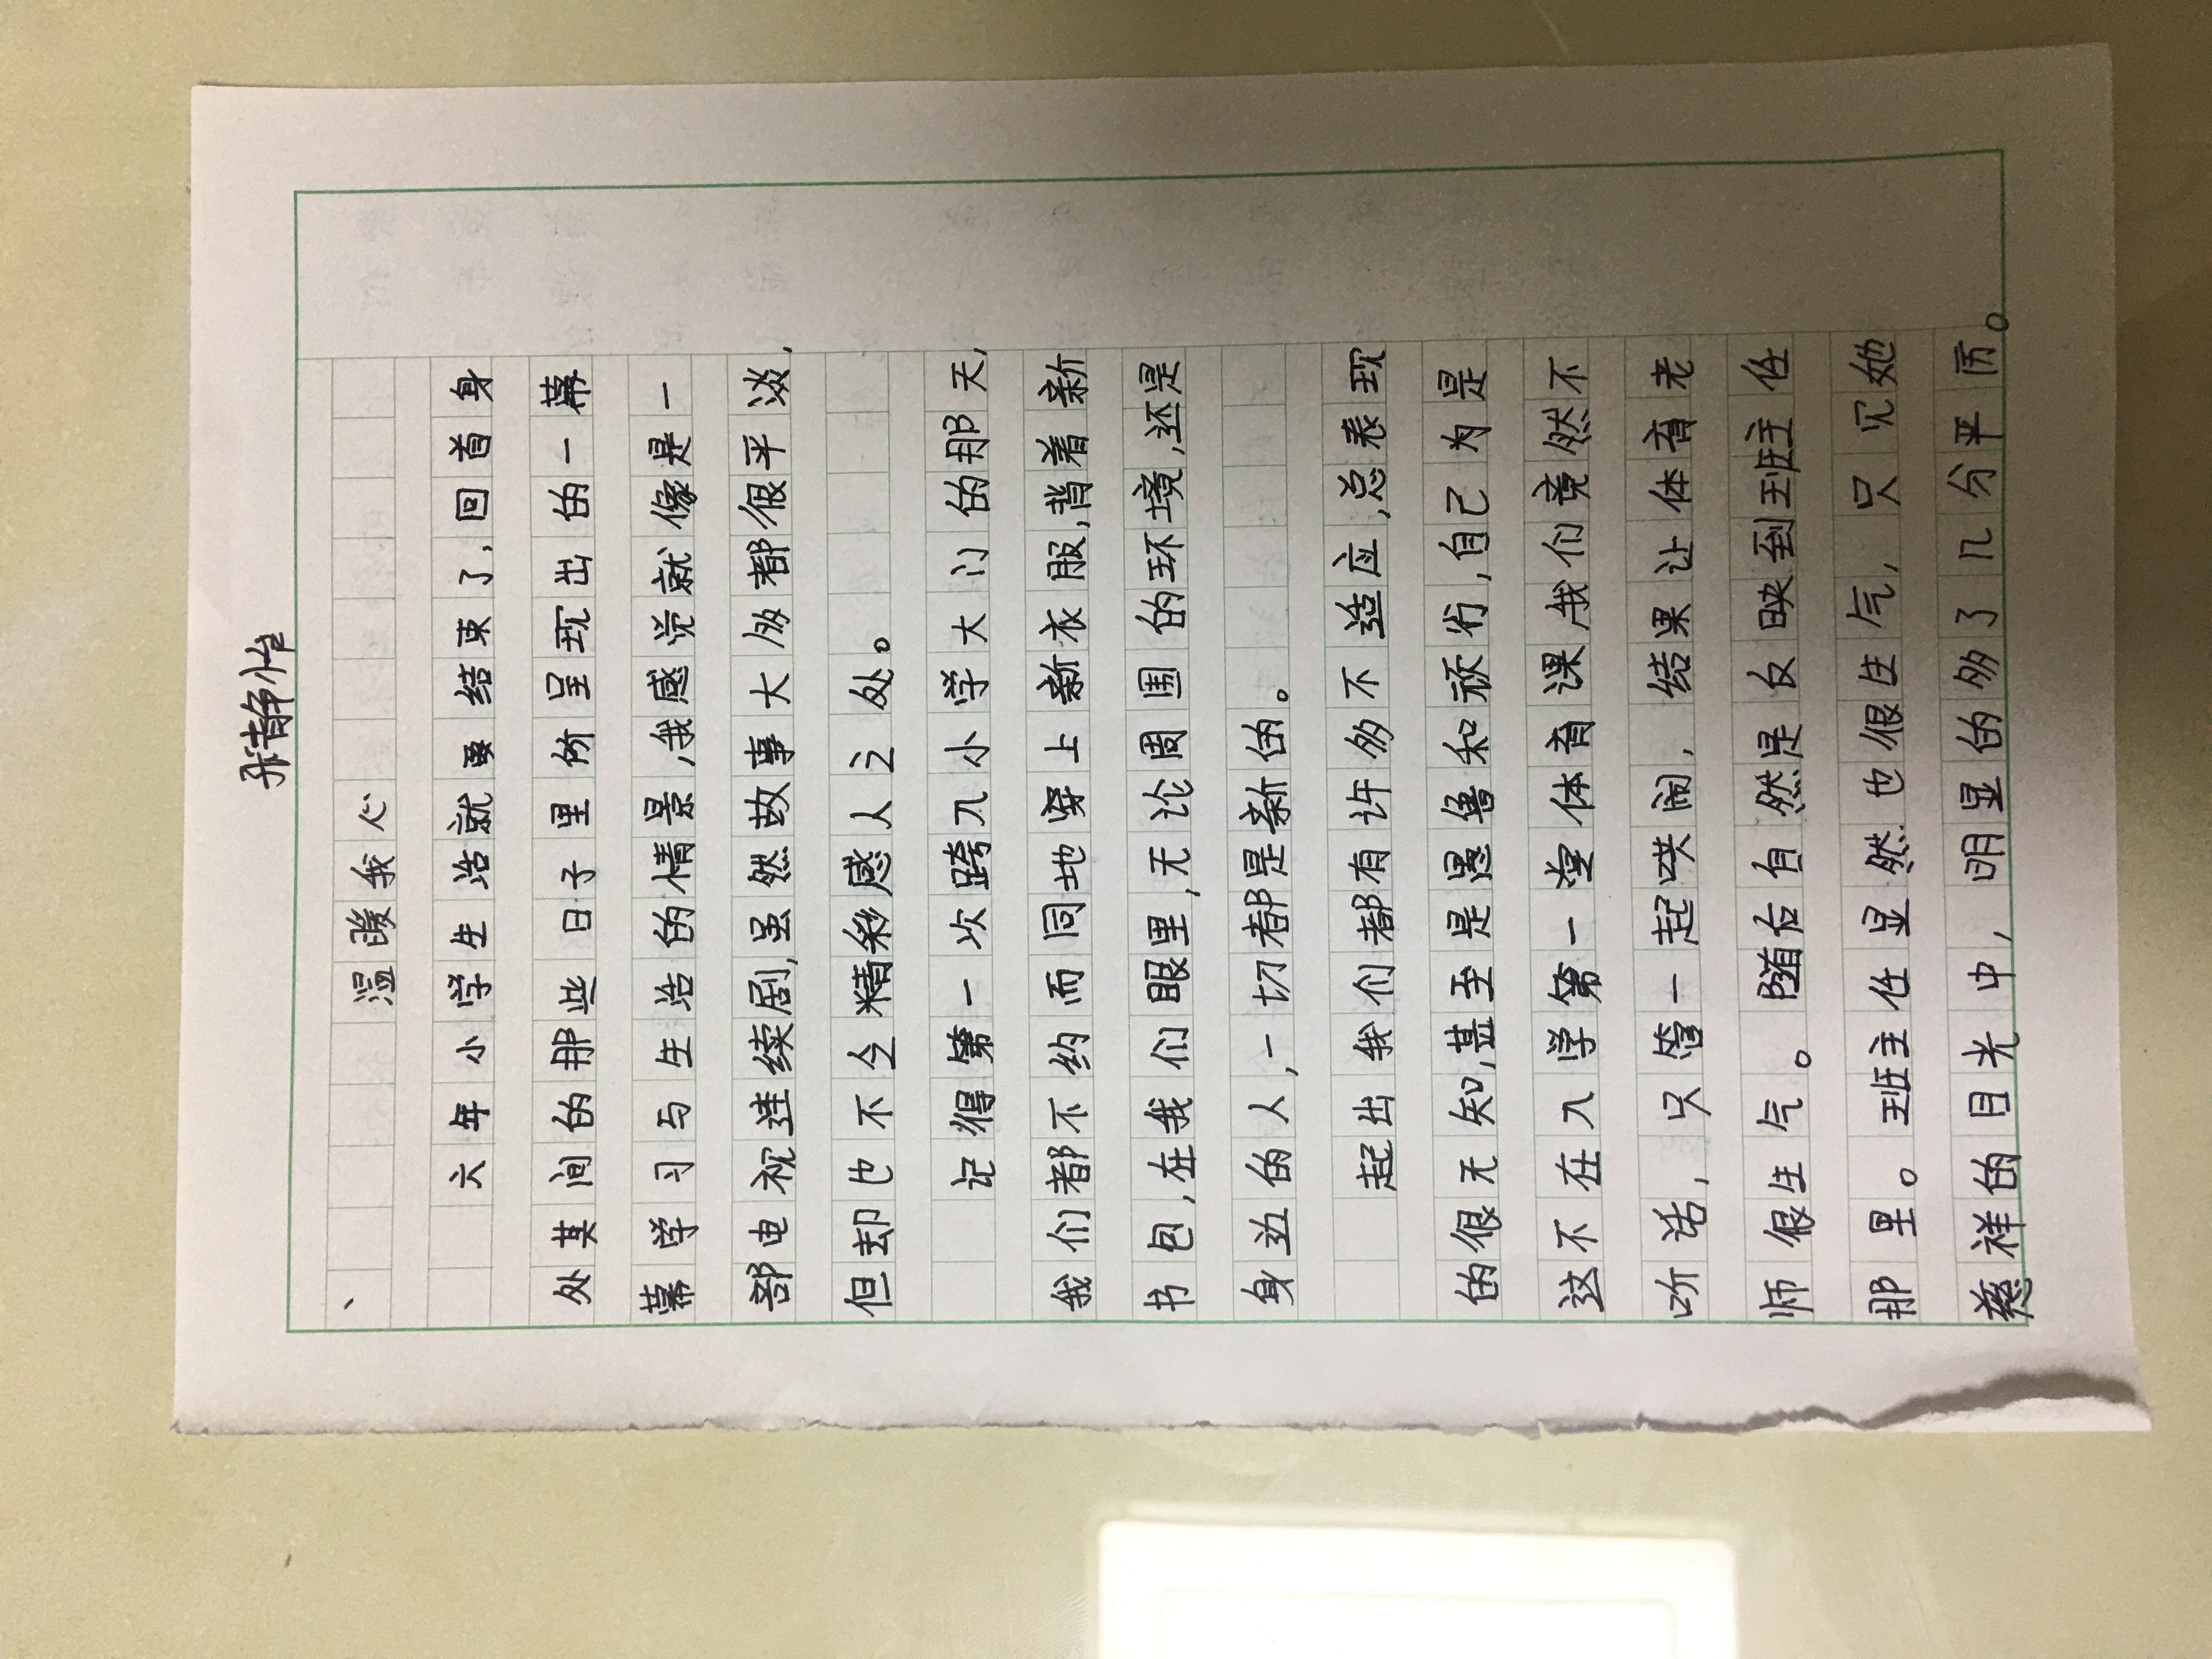 张静怡
温暖我心
六年小学生活就要结束了,回首身
处其间的那些日子里所呈现出的一幕
幕学习与生活的情景,我感觉就像是一
部电视连续剧,虽然故事大多都很平淡,
但却也不令精彩感人之处。
记得第一次跨入小学大门的那天,
我们都不约而同地穿上新衣服,背着新
书包,在我们眼里,无论周围的环境,还是
身边的人,一切都是新的。
起出我们都有许多不适应,总表现
的很无知,甚至是愚鲁和顽劣,自己为是
这不在入学第一堂体育课,我们竟然不
听话,只管一起哄闹,结果让体育老
师很生气。随后自然是反映到班主任
那里。班主任显然也很生气,只见她
慈祥的目光中,明显的多了几分严厉。